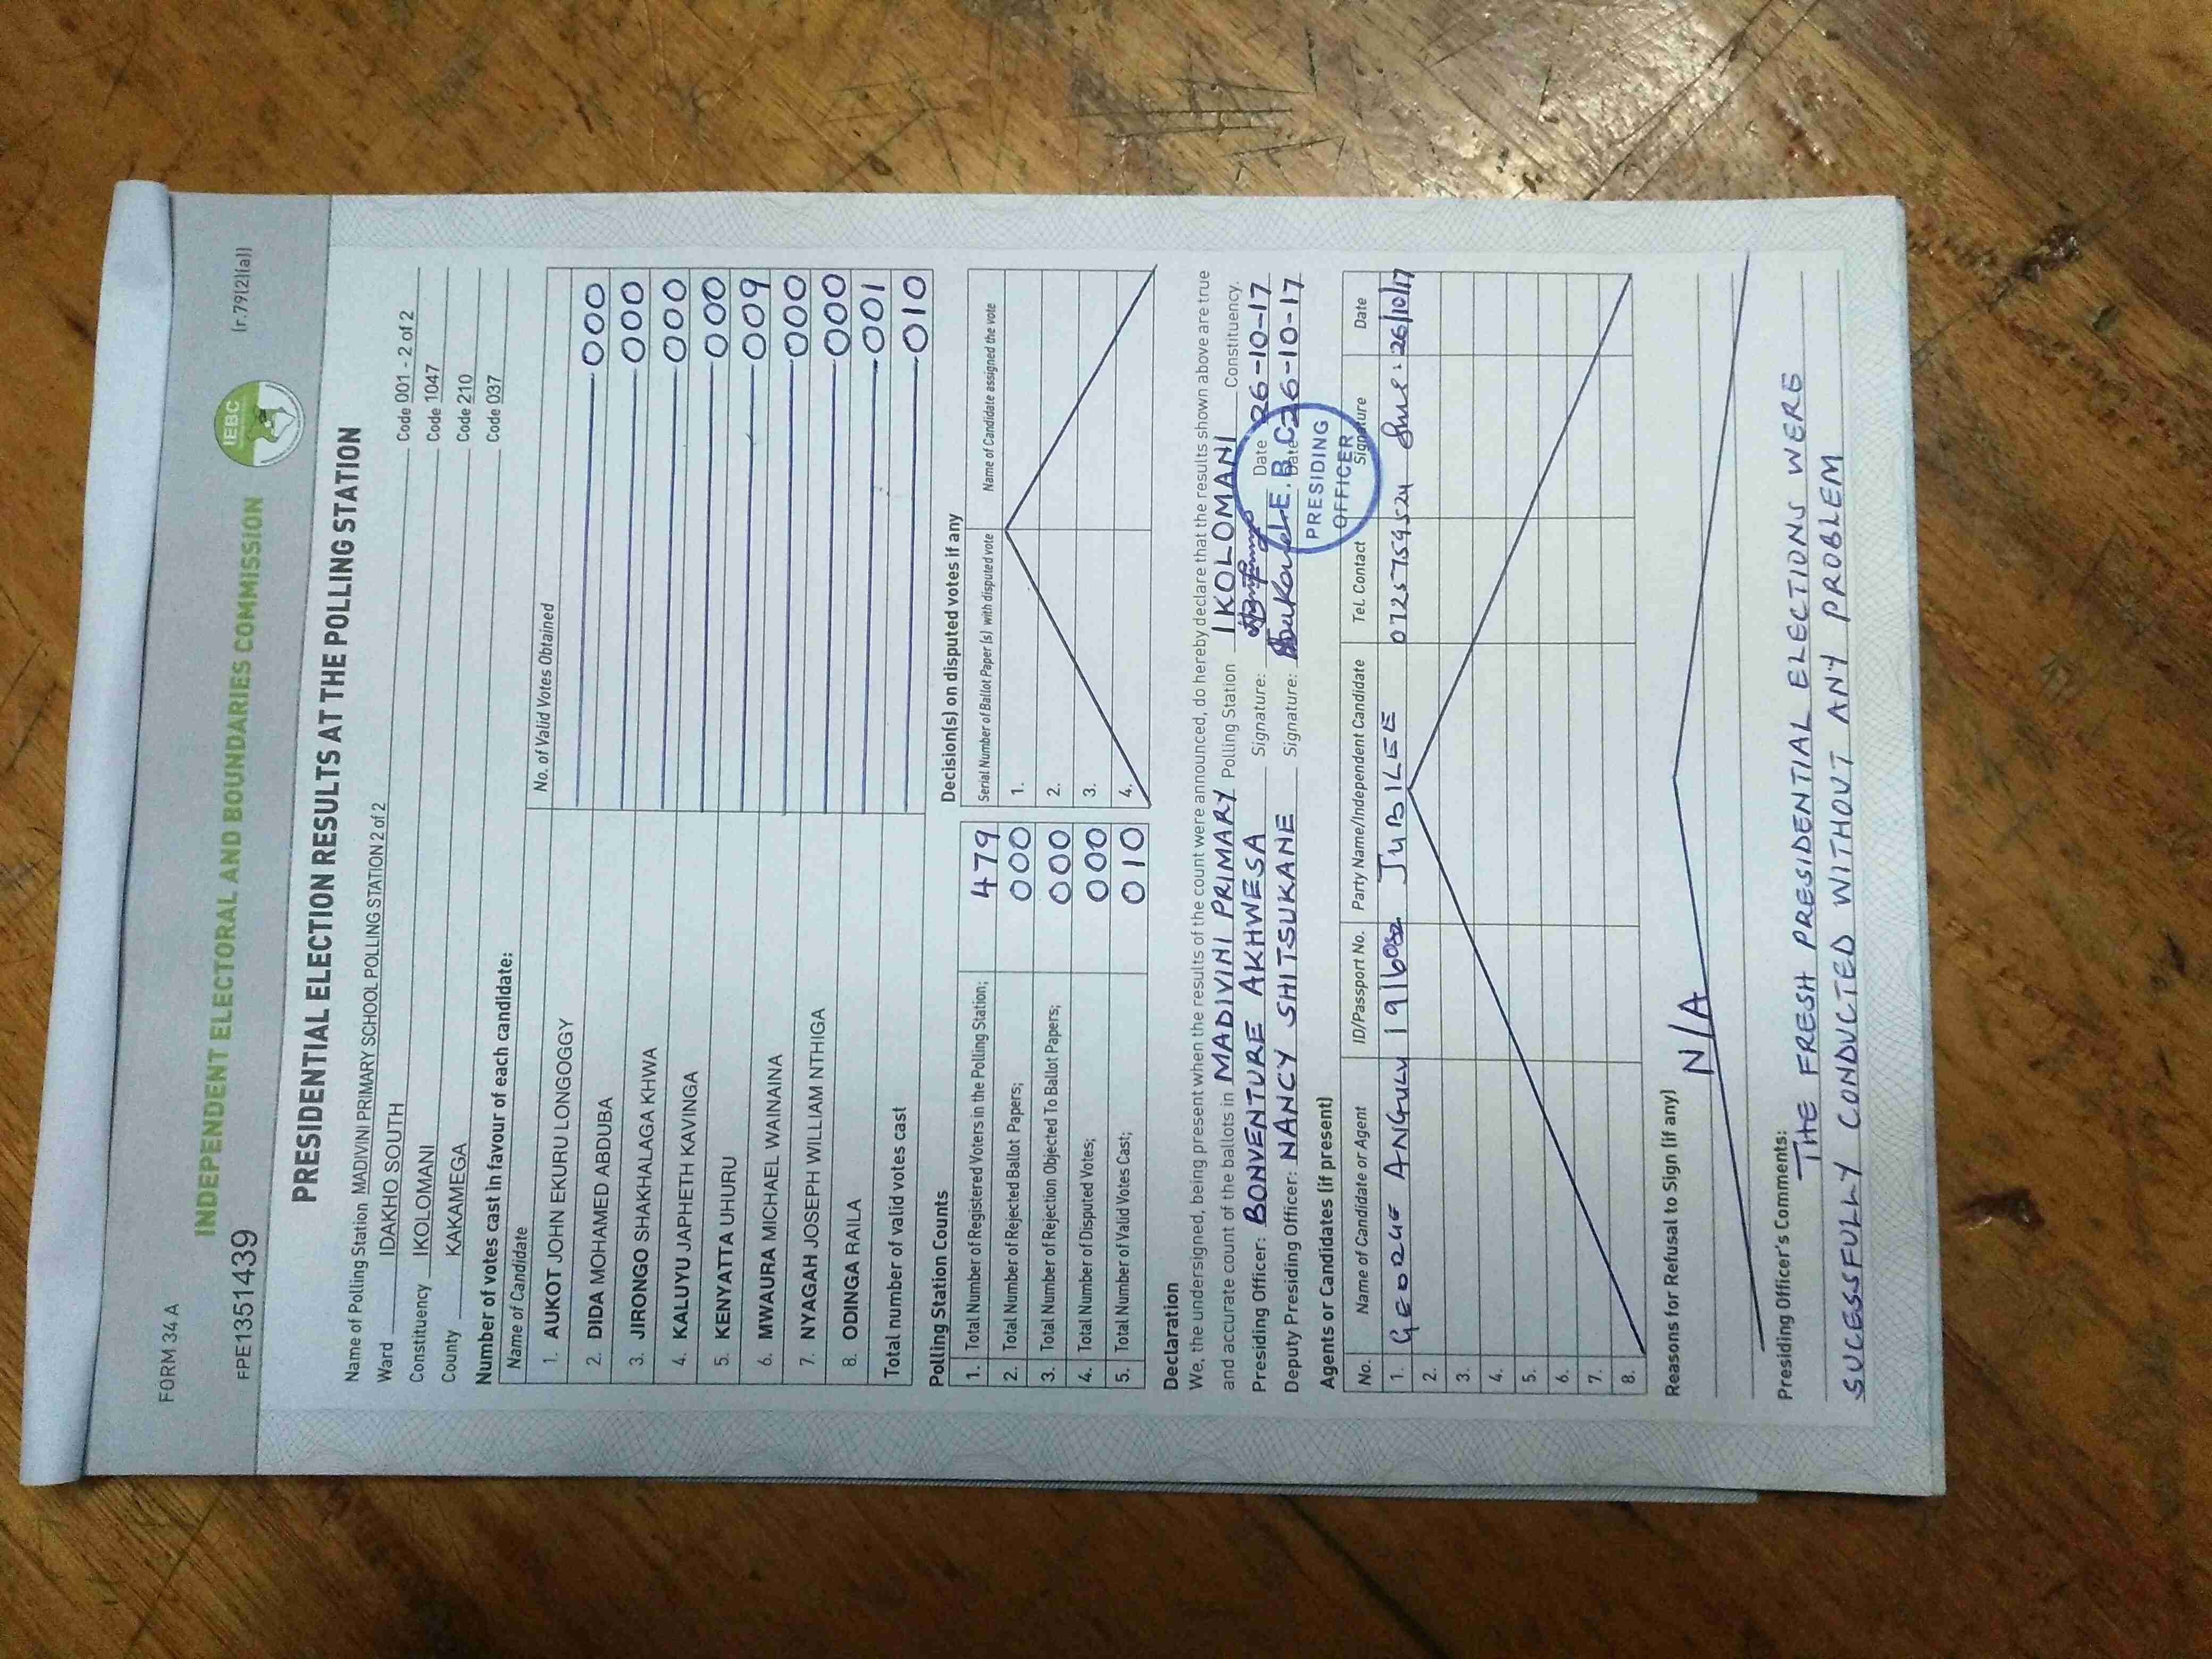 FORM 34 A
(r.79(2)(a))
INDEPENDENT ELECTORAL AND BOUNDARIES COMMISSION
IEBC
FPE1351439
PRESIDENTIAL ELECTION RESULTS AT THE POLLING STATION
Name of Polling Station MADIVINI PRIMARY SCHOOL POLLING STATION 2 of 2 Code 001 - 2 of 2
Ward IDAKHO SOUTH Code 1047
Constituency IKOLOMANI Code 210
County KAKAMEGA Code 037
Number of votes cast in favour of each candidate:
Name of Candidate No. of Valid Votes Obtained
1. AUKOT JOHN EKURU LONGOGGY 000
2. DIDA MOHAMED ABDUBA 000
3. JIRONGO SHAKHALAGA KHWA 000
4. KALUYU JAPHETH KAVINGA 000
5. KENYATTA UHURU 009
6. MWAURA MICHAEL WAINAINA 000
7. NYAGAH JOSEPH WILLIAM NTHIGA 000
8. ODINGA RAILA 001
Total number of valid votes cast 010
Polling Station Counts
1. Total Number of Registered Voters in the Polling Station; 479
2. Total Number of Rejected Ballot Papers; 000
3. Total Number of Rejection Objected To Ballot Papers; 000
4. Total Number of Disputed Votes; 000
5. Total Number of Valid Votes Cast; 010
Decision(s) on disputed votes if any
Serial Number of Ballot Paper (s) with disputed vote Name of Candidate assigned the vote
1.
2.
3.
4.
Declaration
We, the undersigned, being present when the results of the count were announced, do hereby declare that the results shown above are true
and accurate count of the ballots in MADIVINI PRIMARY Polling Station IKOLOMANI Constituency.
Presiding Officer: BONVENTURE AKHWESA Signature: Date 26-10-17
Deputy Presiding Officer: NANCY SHITSUKANE Signature: Date 26-10-17
I.E.B.C
PRESIDING
OFFICER
Agents or Candidates (if present)
No. Name of Candidate or Agent ID/Passport No. Party Name/Independent Candidate Tel. Contact Signature Date
1. GEORGE ANGULU JUBILEE 26/10/17
2.
3.
4.
5.
6.
7.
8.
Reasons for Refusal to Sign (if any)
N/A
Presiding Officer's Comments:
THE FRESH PRESIDENTIAL ELECTIONS WERE
SUCESSFULLY CONDUCTED WITHOUT ANY PROBLEM